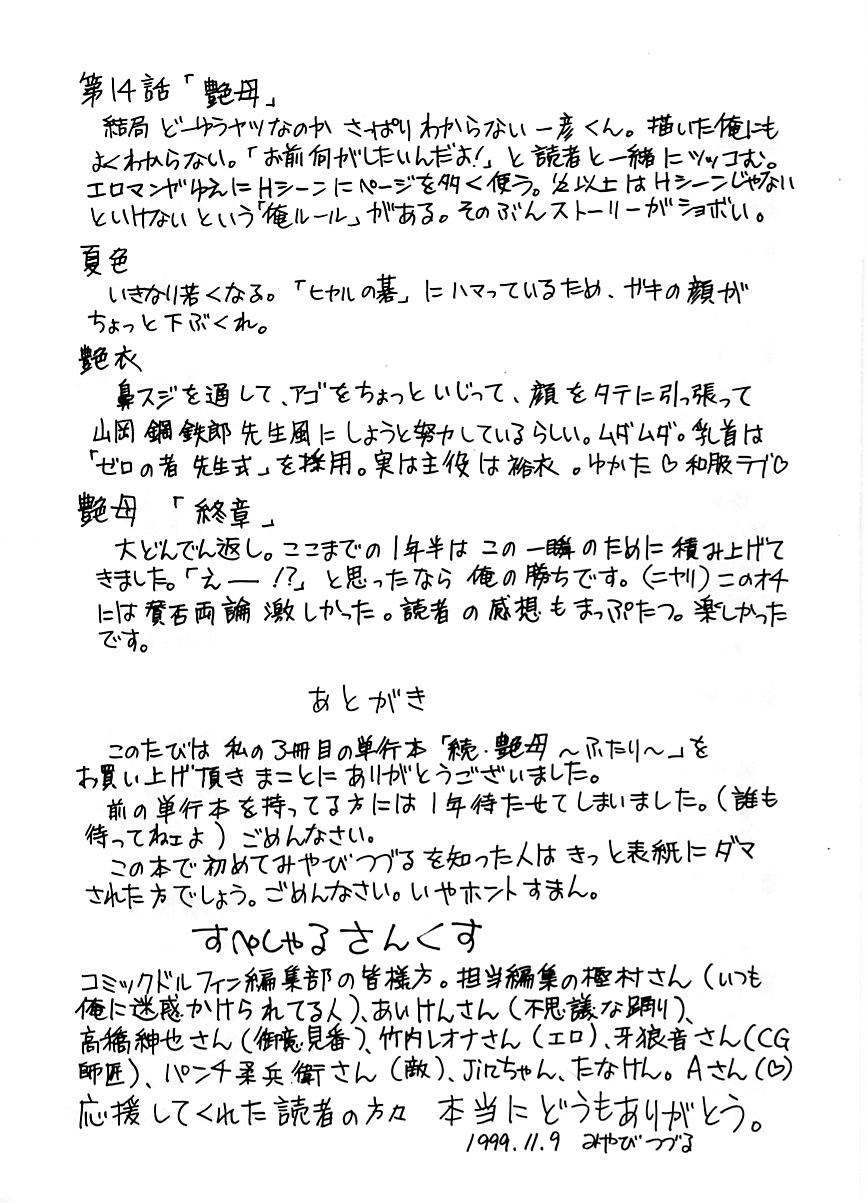 第14話「艶母」
結局 どーゆうヤツなのか さっぱり わからない 一彦くん。描いた俺にも
よくわからない。「お前何がしたいんだよ!」と読者と一緒にツッコむ。
エロマンガゆえにHシーンにページを多く使う。½以上はHシーンじゃない
といけないという「俺ルール」がある。そのぶんストーリーがショボい。
夏色
いきなり若くなる。「ヒカルの碁」にハマっているため、ガキの顔が
ちょっと下ぶくれ。
艶衣
鼻スジを通して、アゴをちょっといじって、顔をタテに引っ張って
山岡鋼鉄郎先生風にしようと努力しているらしい。ムダムダ。乳首は
「ゼロの者 先生式」を採用。実は主役は裕衣。ゆかた♡和服ラブ♡
艶母 「終章」
大どんでん返し。ここまでの1年半はこの一瞬のために積み上げて
きました。「えー!?」と思ったなら俺の勝ちです。(ニヤリ)このオチ
には賛否両論激しかった。読者の感想もまっぷたつ。楽しかった
です。
あとがき
このたびは 私の3冊目の単行本「続・艶母〜ふたり〜」を
お買い上げ頂き まことにありがとうございました。
前の単行本を持ってる方には1年待たせてしまいました。(誰も
待ってねェよ) ごめんなさい。
この本で初めてみやびつづるを知った人は きっと表紙にダマ
された方でしょう。ごめんなさい。いやホントすまん。
すぺしゃるさんくす
コミックドルフィン編集部の皆様方。担当編集の極村さん(いつも
俺に迷惑かけられてる人)、あいけんさん(不思議な踊り)、
高橋紳也さん(御意見番)、竹内レオナさん(エロ)、牙狼音さん(CG
師匠)、パンチ柔兵衛さん(敵)、Jinちゃん、たなけん。Aさん(♡)
応援してくれた読者の方々 本当にどうもありがとう。
1999.11.9 みやびつづる